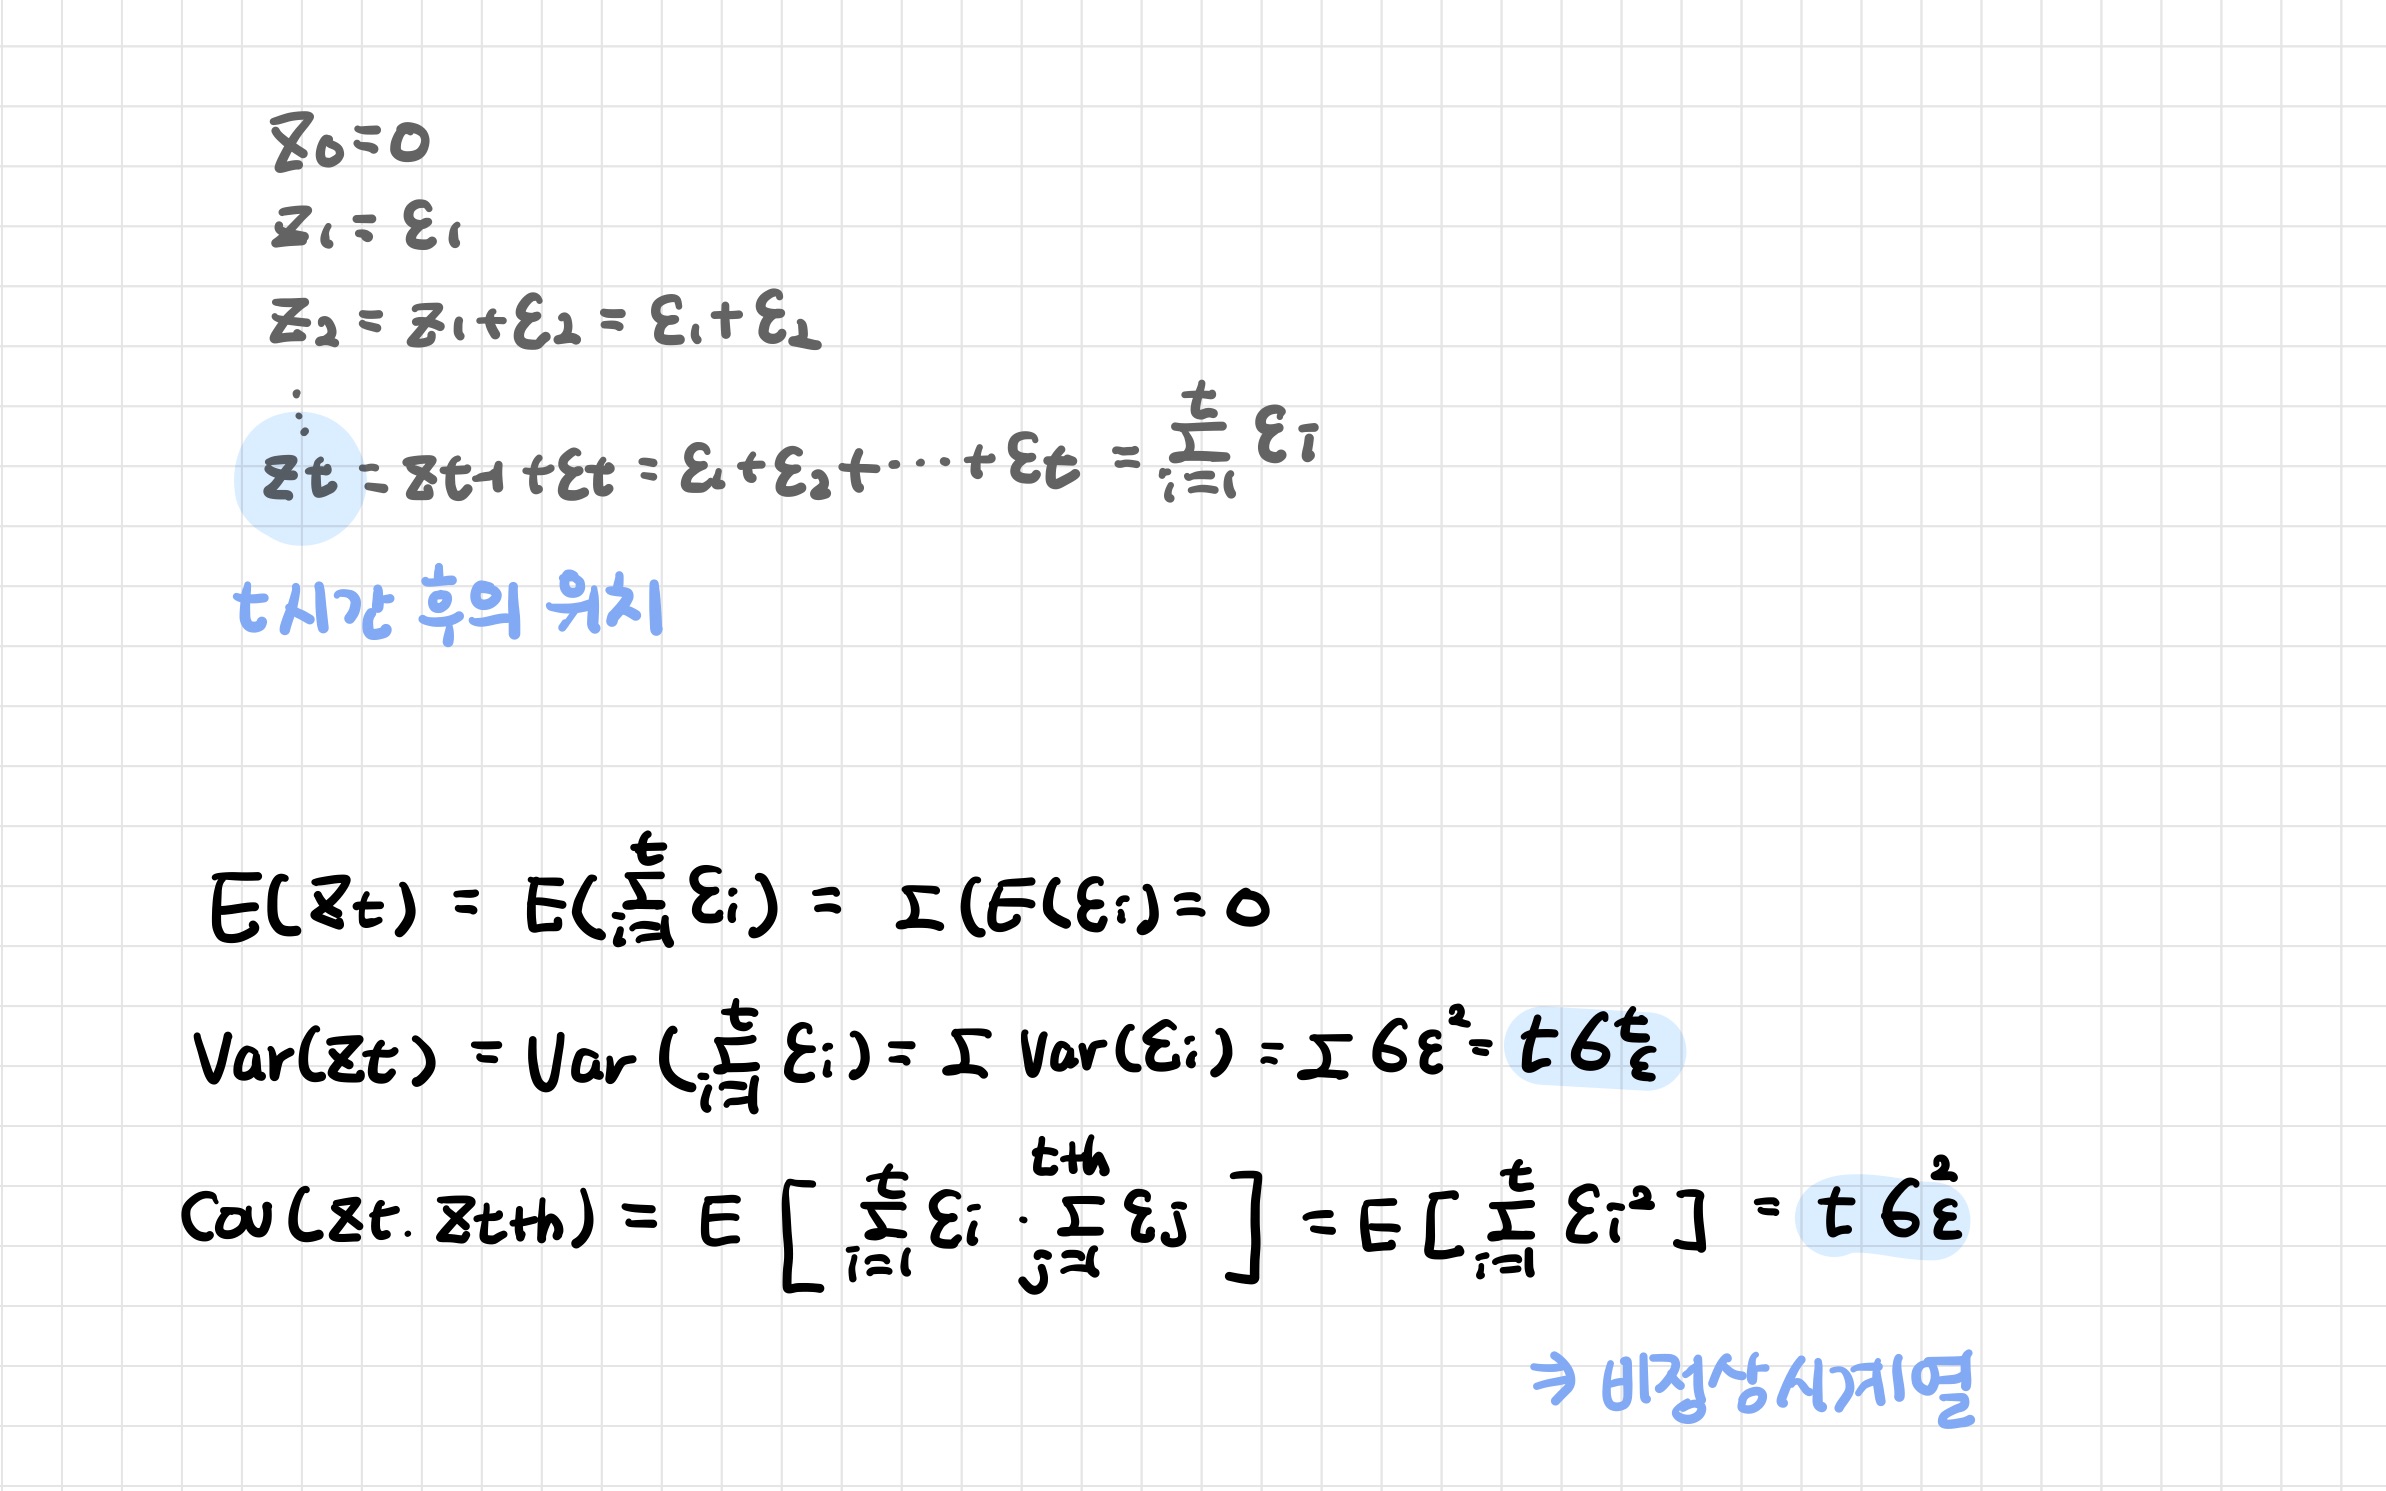 Z₀=0
Z₁ = ε₁
Z₂ = Z₁+ε₂ = ε₁+ε₂
⋮
Zt = Zt-1 + εt = ε₁+ε₂+⋯+εt = Σ_{i=1}^{t} εi
t시간 후의 위치
E(Zt) = E(Σ_{i=1}^{t} εi) = Σ(E(εi)=0
Var(Zt) = Var(Σ_{i=1}^{t} εi) = Σ Var(εi) = Σ σε² = tσε^t
Cov(Zt. Zt+h) = E[Σ_{i=1}^{t} εi · Σ_{j=1}^{t+h} εj] = E[Σ_{i=1}^{t} εi²] = tσε²
→ 비정상시계열